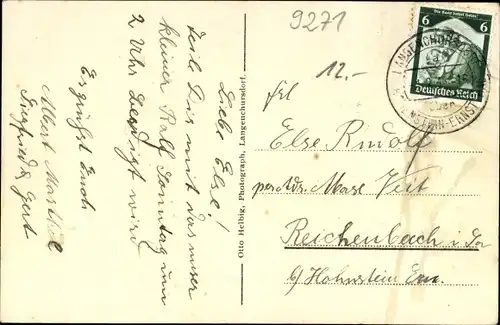 9271
12.-
Liebe Else!
Teile Dir mit das unser
kleiner Ralf Sonntag um
2 Uhr beerdigt wird
Es grüßt Euch
Albert Martha
Siegfried & Gert
Otto Helbig, Photograph, Langenchursdorf.
6 6
Deutsches Reich
LANGENCHURSDORF
HOHENSTEIN-ERNSTTHAL
Frl
Else Rudolf
per Adr. Max Veit
Reichenbach i Sa
b/ Hohnstein Ern.